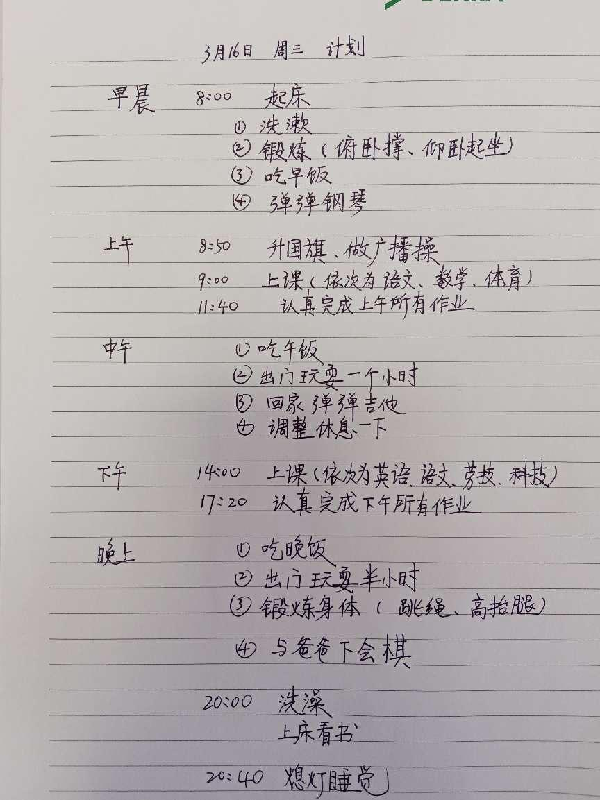 3月16日 周三 计划
早晨 8:00 起床
① 洗漱
② 锻炼(俯卧撑、仰卧起坐)
③ 吃早饭
④ 弹弹钢琴
上午 8:50 升国旗、做广播操
9:00 上课(依次为语文、数学、体育)
11:40 认真完成上午所有作业
中午 ① 吃午饭
② 出门玩耍一个小时
③ 回家弹弹吉他
④ 调整休息一下
下午 14:00 上课(依次为英语、语文、劳技、科技)
17:20 认真完成下午所有作业
晚上 ① 吃晚饭
② 出门玩耍半小时
③ 锻炼身体(跳绳、高抬腿)
④ 与爸爸下会棋
20:00 洗澡
上床看书
20:40 熄灯睡觉